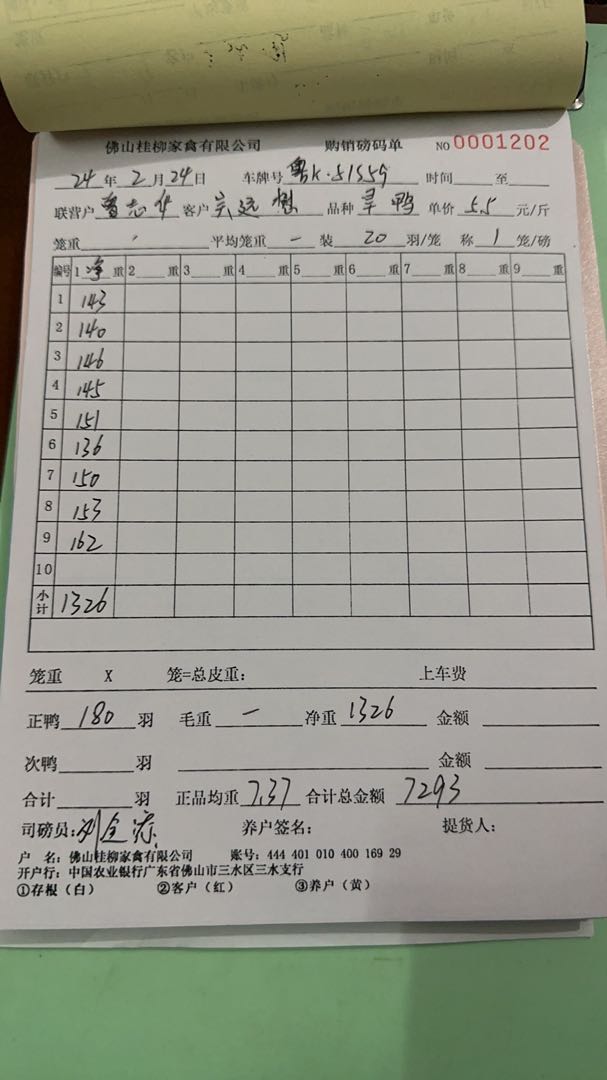 佛山桂柳家禽有限公司 购销磅码单 NO 0001202
24 年 2 月 24 日 车牌号 粤K·51559 时间 至
联营户 曾志华 客户 吴远 品种 旱鸭 单价 5.5 元/斤
笼重 平均笼重 — 装 20 羽/笼 称 1 笼/磅
编号 1 净 重 2 重 3 重 4 重 5 重 6 重 7 重 8 重 9 重
1 143
2 140
3 146
4 145
5 151
6 136
7 150
8 153
9 162
10
小计 1326
笼重 X 笼=总皮重: 上车费
正鸭 180 羽 毛重 — 净重 1326 金额
次鸭 羽 金额
合计 羽 正品均重 7.37 合计总金额 7293
司磅员: 刘 养户签名: 提货人:
户 名: 佛山桂柳家禽有限公司 账号: 444 401 010 400 169 29
开户行: 中国农业银行广东省佛山市三水区三水支行
①存根（白） ②客户（红） ③养户（黄）